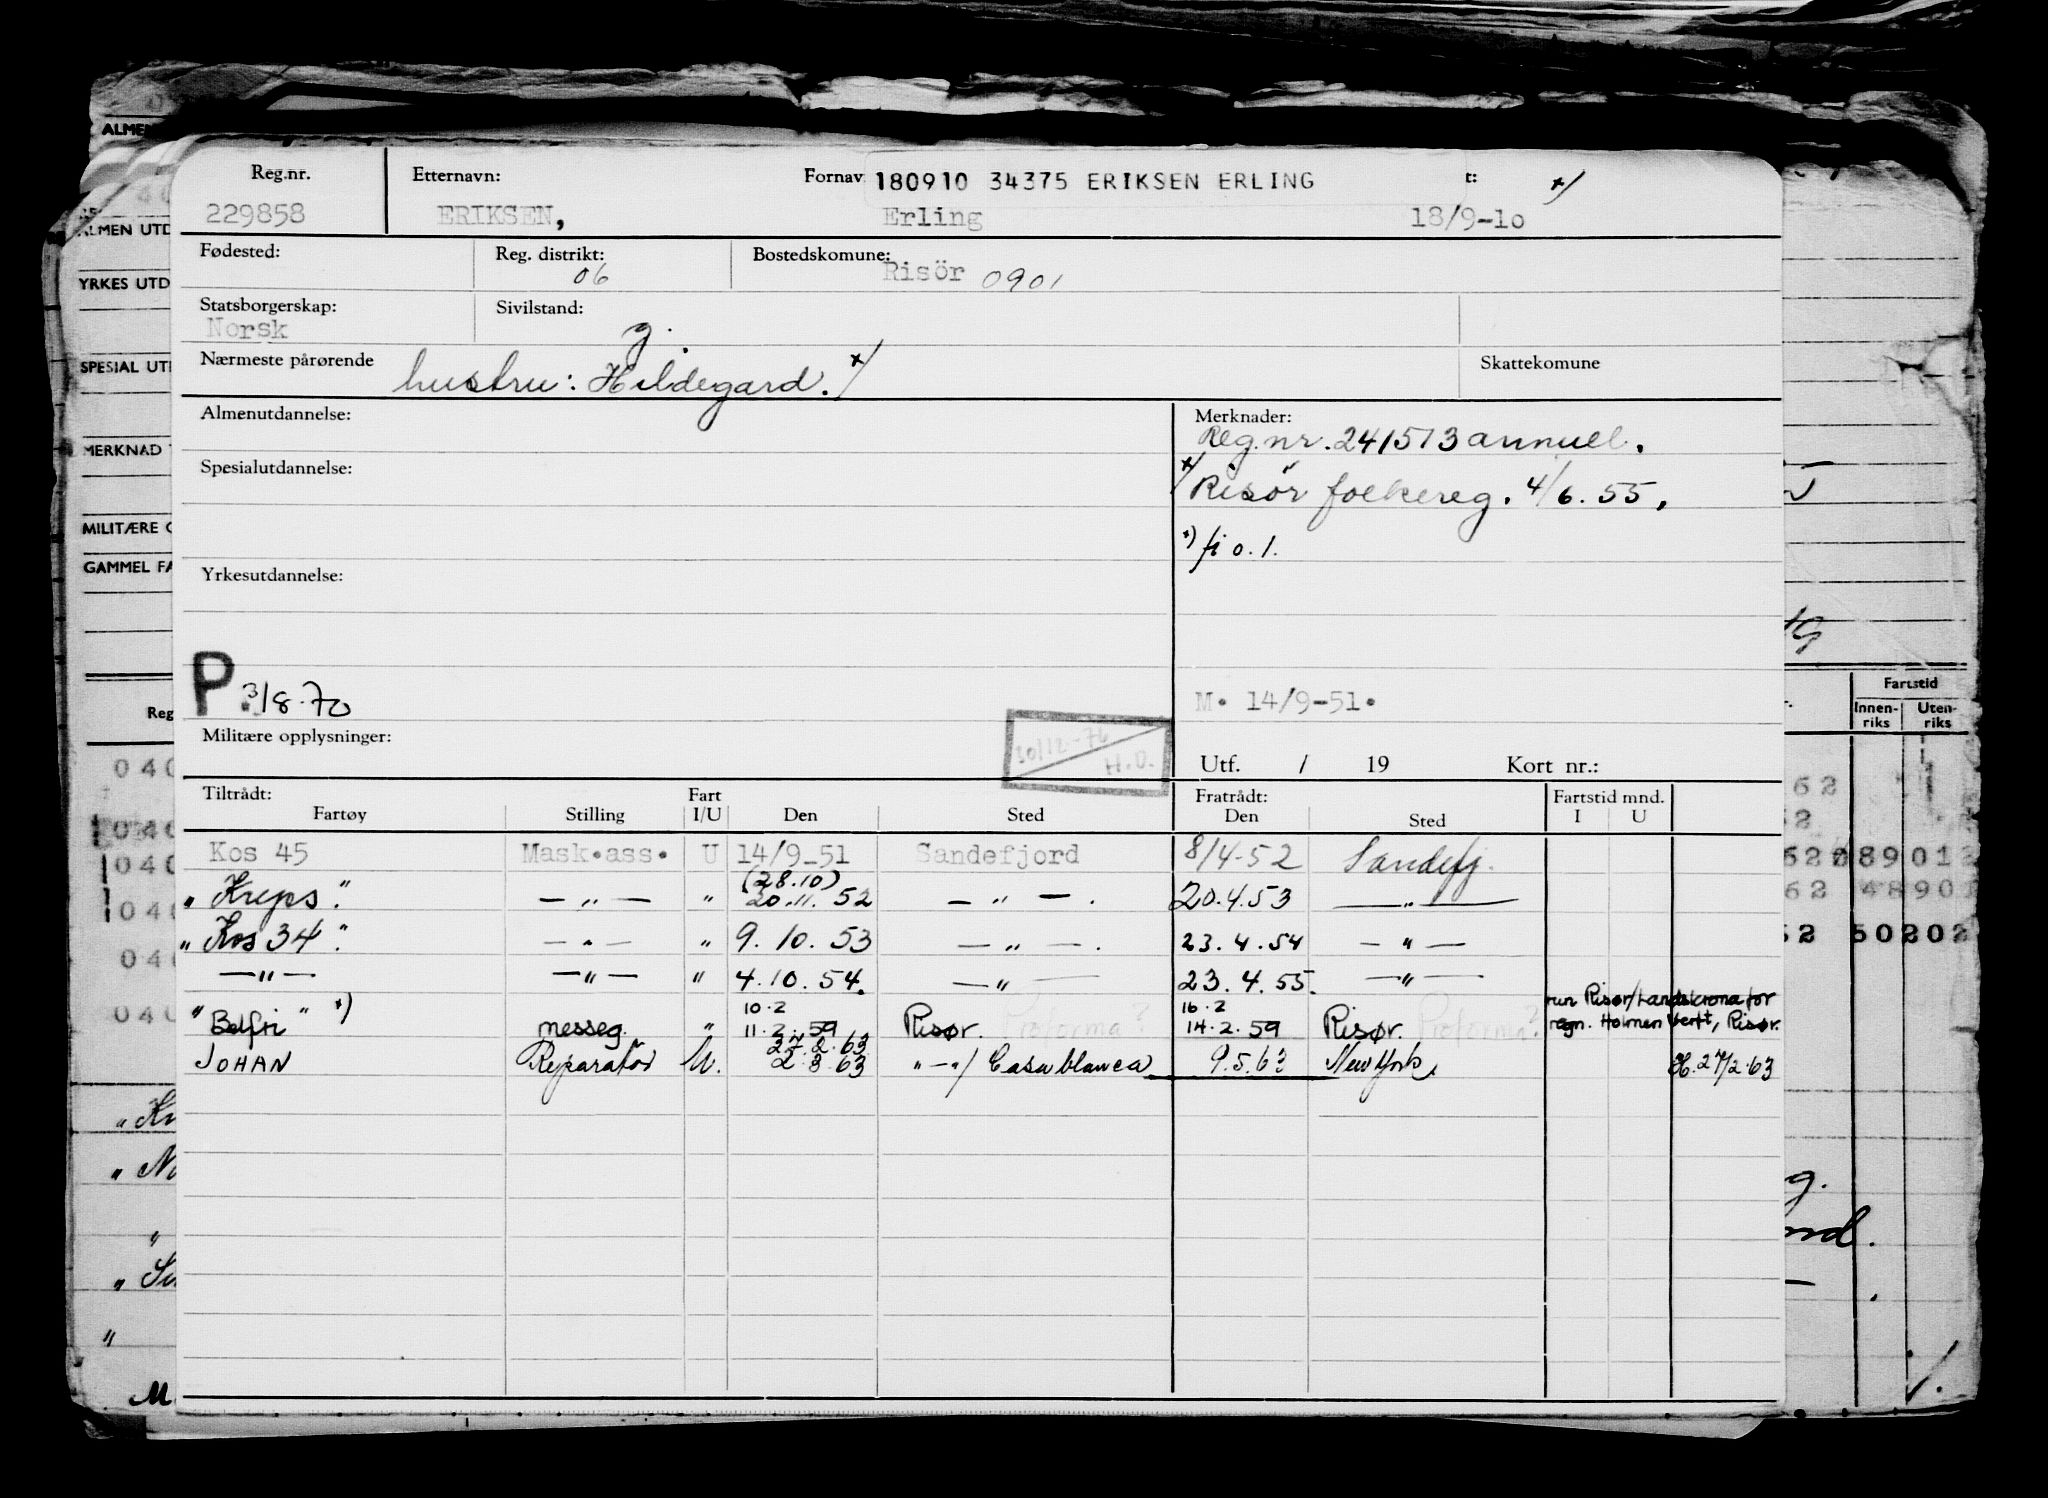 Reg.nr. Etternavn: Fornav 180910 34375 ERIKSEN ERLING t: x/
229858 ERIKSEN, Erling 18/9-10
Fødested: Reg. distrikt: 06 Bostedskomune: Risör 0901
Statsborgerskap: Norsk Sivilstand: g.
Nærmeste pårørende hustru: Hildegard. x/ Skattekomune
Almenutdannelse: Merknader:
Reg.nr. 241513 annull.
Spesialutdannelse: x/ Risör folkereg. 4/6. 55.
x) fi o. 1.
Yrkesutdannelse:
P 3/8-70
M. 14/9-51.
Militære opplysninger: 30/12-76 H.O.
Utf. / 19 Kort nr.:
Tiltrådt: Fratrådt: Fartstid mnd.
Fartøy Stilling Fart I/U Den Sted Den Sted I U
Kos 45 Mask.ass. U 14/9-51 Sandefjord 8/4-52 Sandefj.
(28.10)
"Kreps". — " — " 20.11. 52 — " — . 20.4.53 — " —
"Kos 34". — " — " 9. 10. 53 — " — . 23. 4. 54 — " —
— " — — " — " 4. 10. 54. — " — 23. 4. 55. — " —
10.2 16.2 run Risør/Landskrona for
"Belfri" x) messeg. " 11. 2. 59 Risør. Proforma? 14. 2. 59 Risør. Proforma? regn. Holmen Verft, Risør.
27.2.63
JOHAN Reparatör U. 2.3.63 "—"/Casablanca 9.5.63 New York, H. 27/2-63
ALMEN UTD
YRKES UTD
SPESIAL UT
MERKNAD
MILITÆRE O
GAMMEL FA
Reg
Fartstid
Innen-riks Uten-riks
040
040
040
040
040
040
62
62 089012
62 48901
52 50202